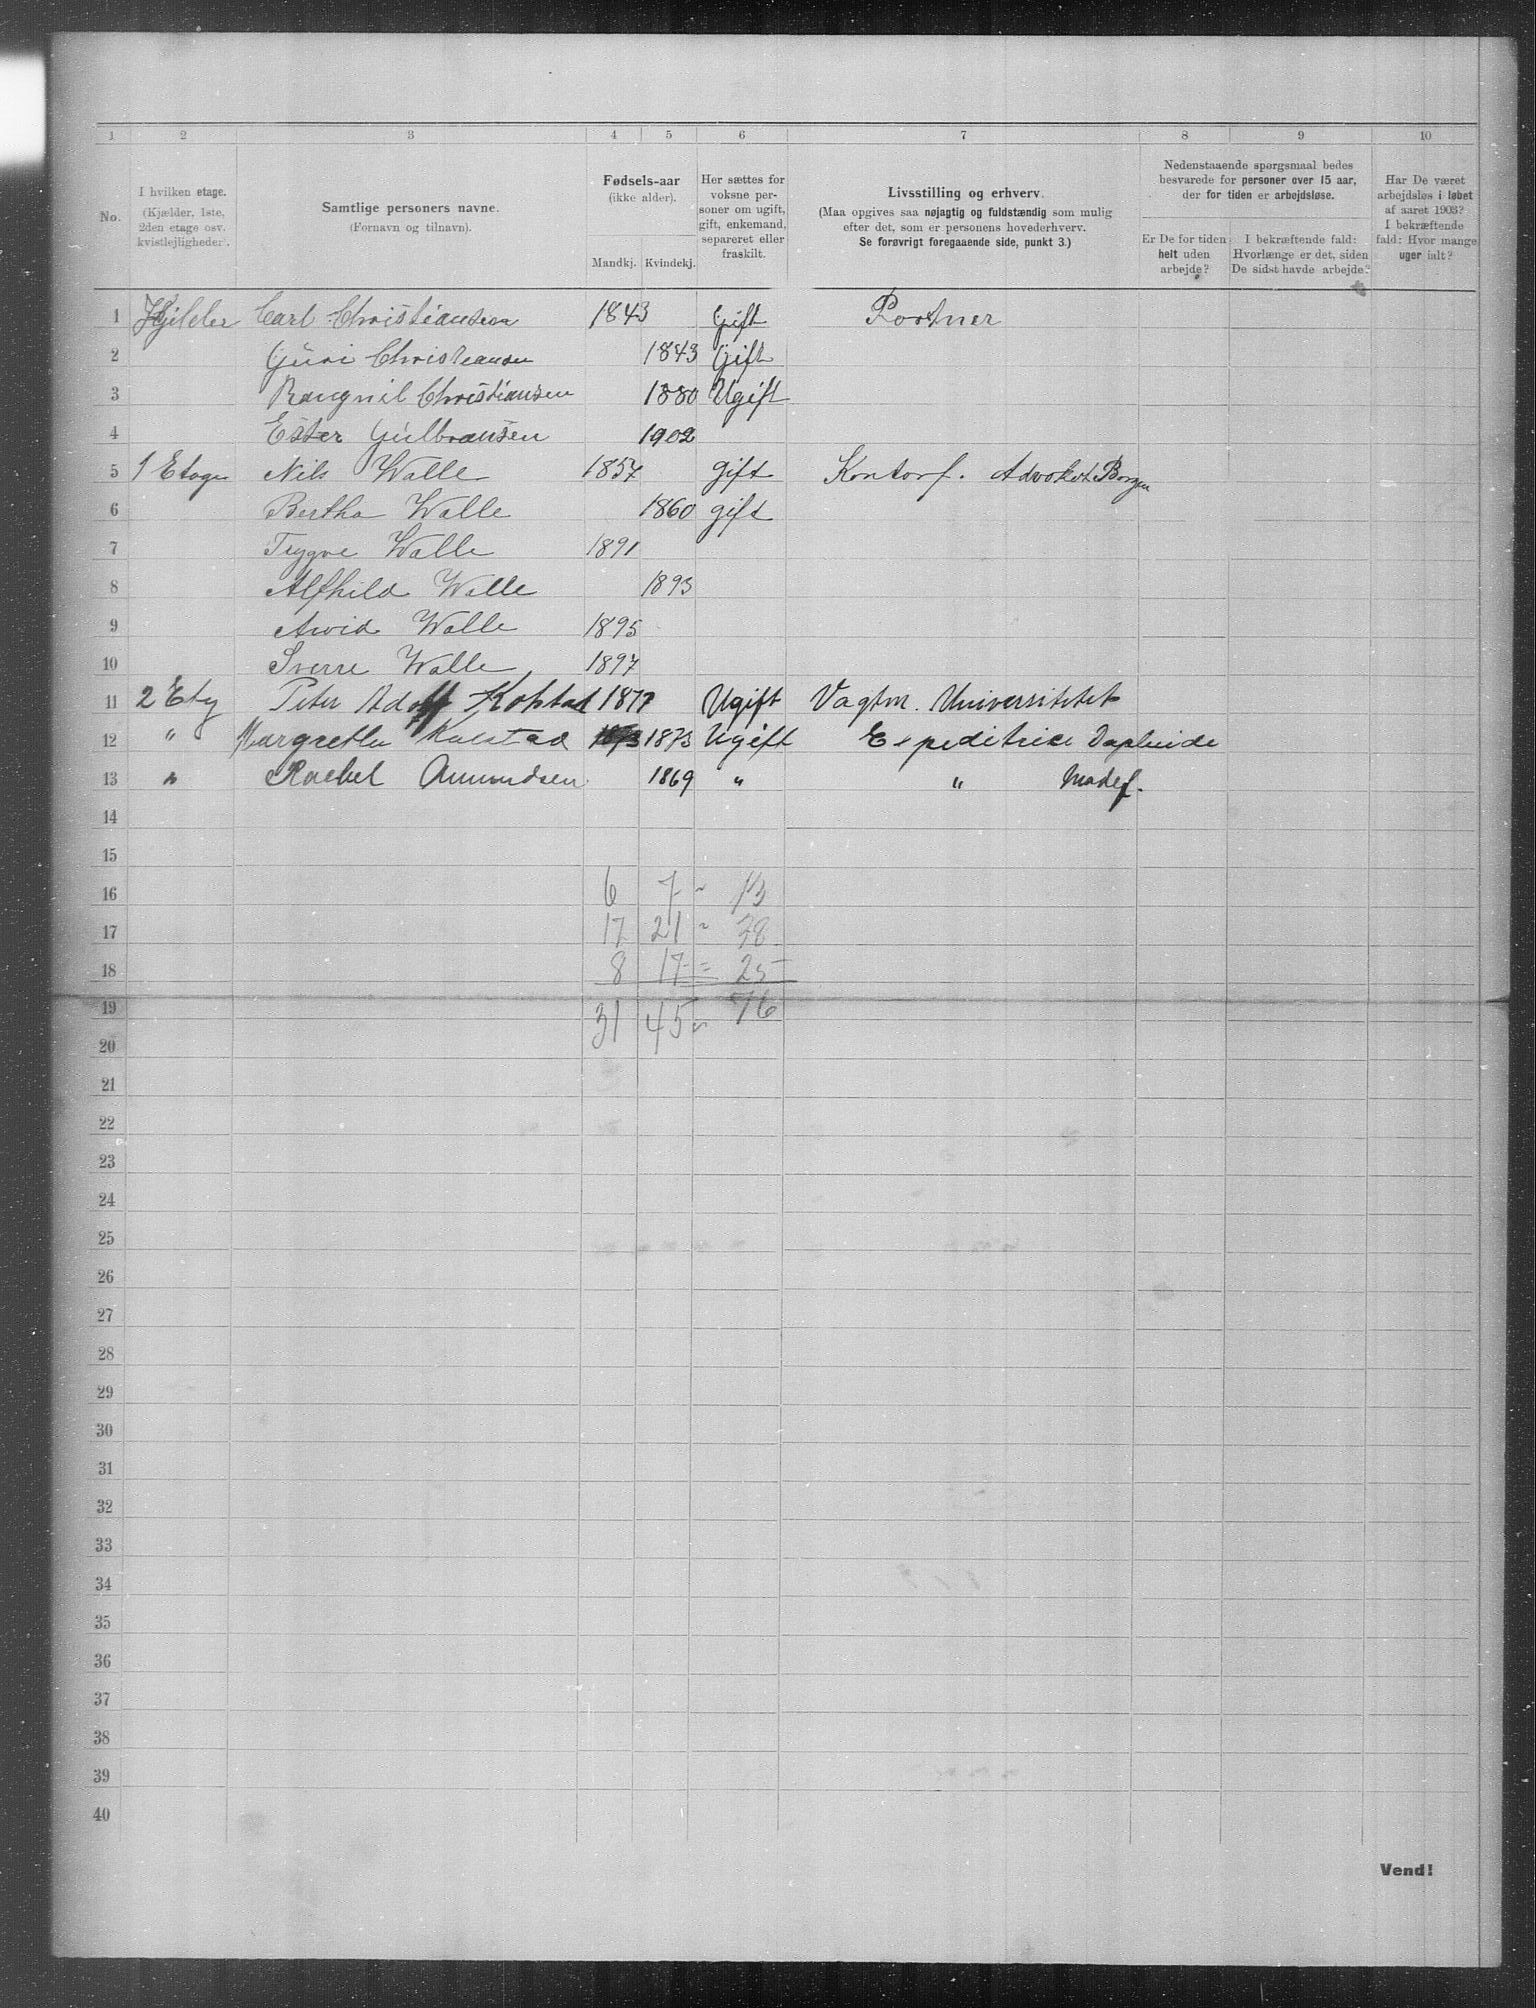 1 2 3 4 5 6 7 8 9 10
No.
I hvilken etage.
(Kjælder, 1ste,
2den etage osv.
kvistlejligheder).
Samtlige personers navne.
(Fornavn og tilnavn).
Fødsels-aar
(ikke alder).
Mandkj. Kvindekj.
Her sættes for
voksne per-
soner om ugift,
gift, enkemand,
separeret eller
fraskilt.
Livsstilling og erhverv.
(Maa opgives saa nøjagtig og fuldstændig som mulig
efter det, som er personens hovederhverv.
Se forøvrigt foregaaende side, punkt 3.)
Nedenstaaende spørgsmaal bedes
besvarede for personer over 15 aar,
der for tiden er arbejdsløse.
Er De for tiden
helt uden
arbejde?
I bekræftende fald:
Hvorlænge er det, siden
De sidst havde arbejde?
Har De været
arbejdsløs i løbet
af aaret 1903?
I bekræftende
fald: Hvor mange
uger ialt?
1 Carl Christiansen 1843 Gift Portner
2 Guri Christiansen 1843 Gift
3 Rangnil Christiansen 1880 Ugift
4 Ester Gulbransen 1902
5 1 Etage Nils Walle 1857 gift Kontorf. Advokat Borgen
6 Bertha Walle 1860 gift
7 Trygve Walle 1891
8 Alfhild Walle 1893
9 Arvid Walle 1895
10 Sverre Walle 1897
11 2 Etg Peter Adolf Kolstad 1877 Ugift Vagtm. Universitetet
12 " Margrethe Kolstad 1873 1873 Ugift Expeditrice
13 " Rachel Amundsen 1869 " "
14
15
16 6 7 - 13
17 17 21 - 38
18 8 17 = 25
19 31 45 = 76
20
21
22
23
24
25
26
27
28
29
30
31
32
33
34
35
36
37
38
39
40
Vend!